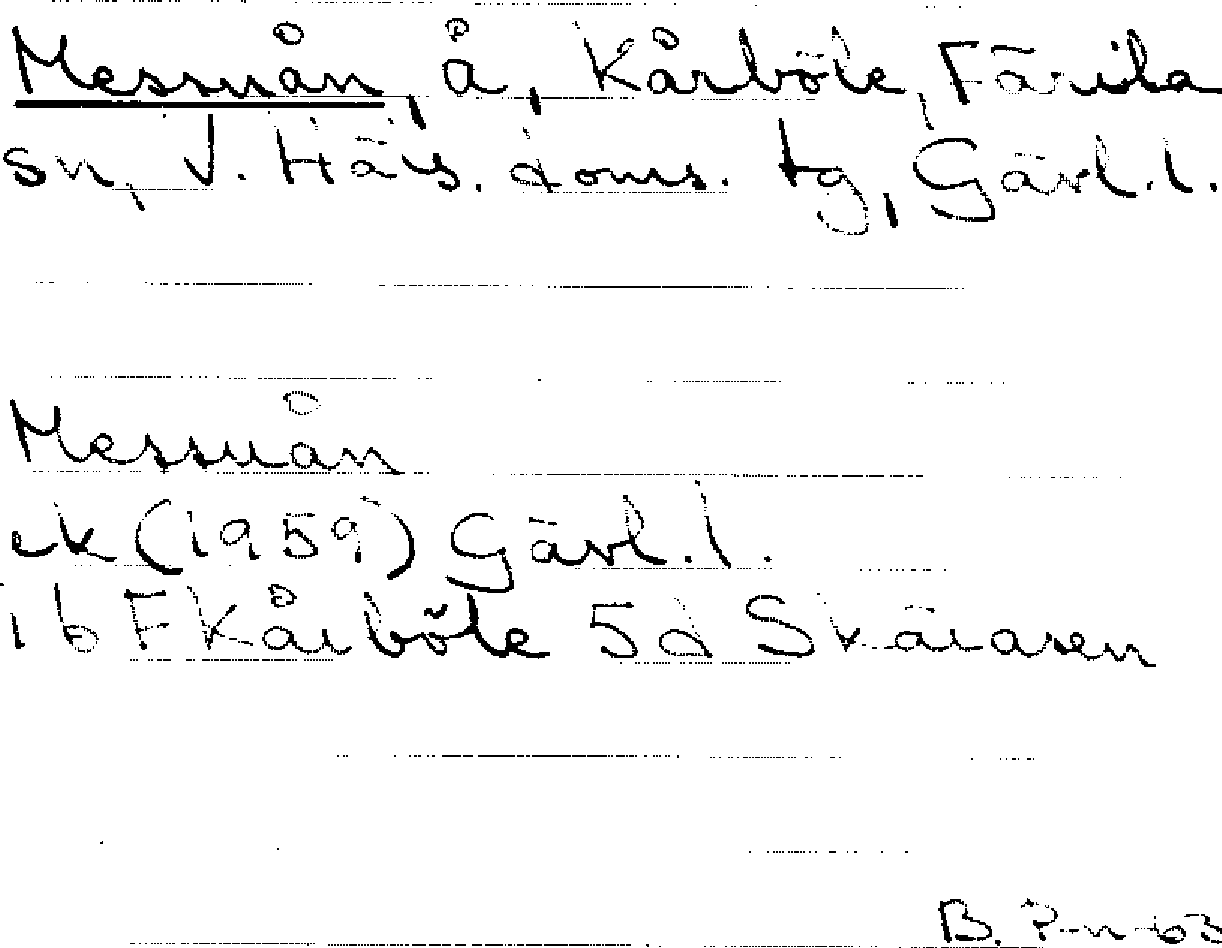 Messuån, å, Kårböle, Färila
sn, V. Häls. doms. tg, Gävl. l.
Messuån
ek (1959) Gävl. l.
16 F Kårböle 5d
B. P-n 63